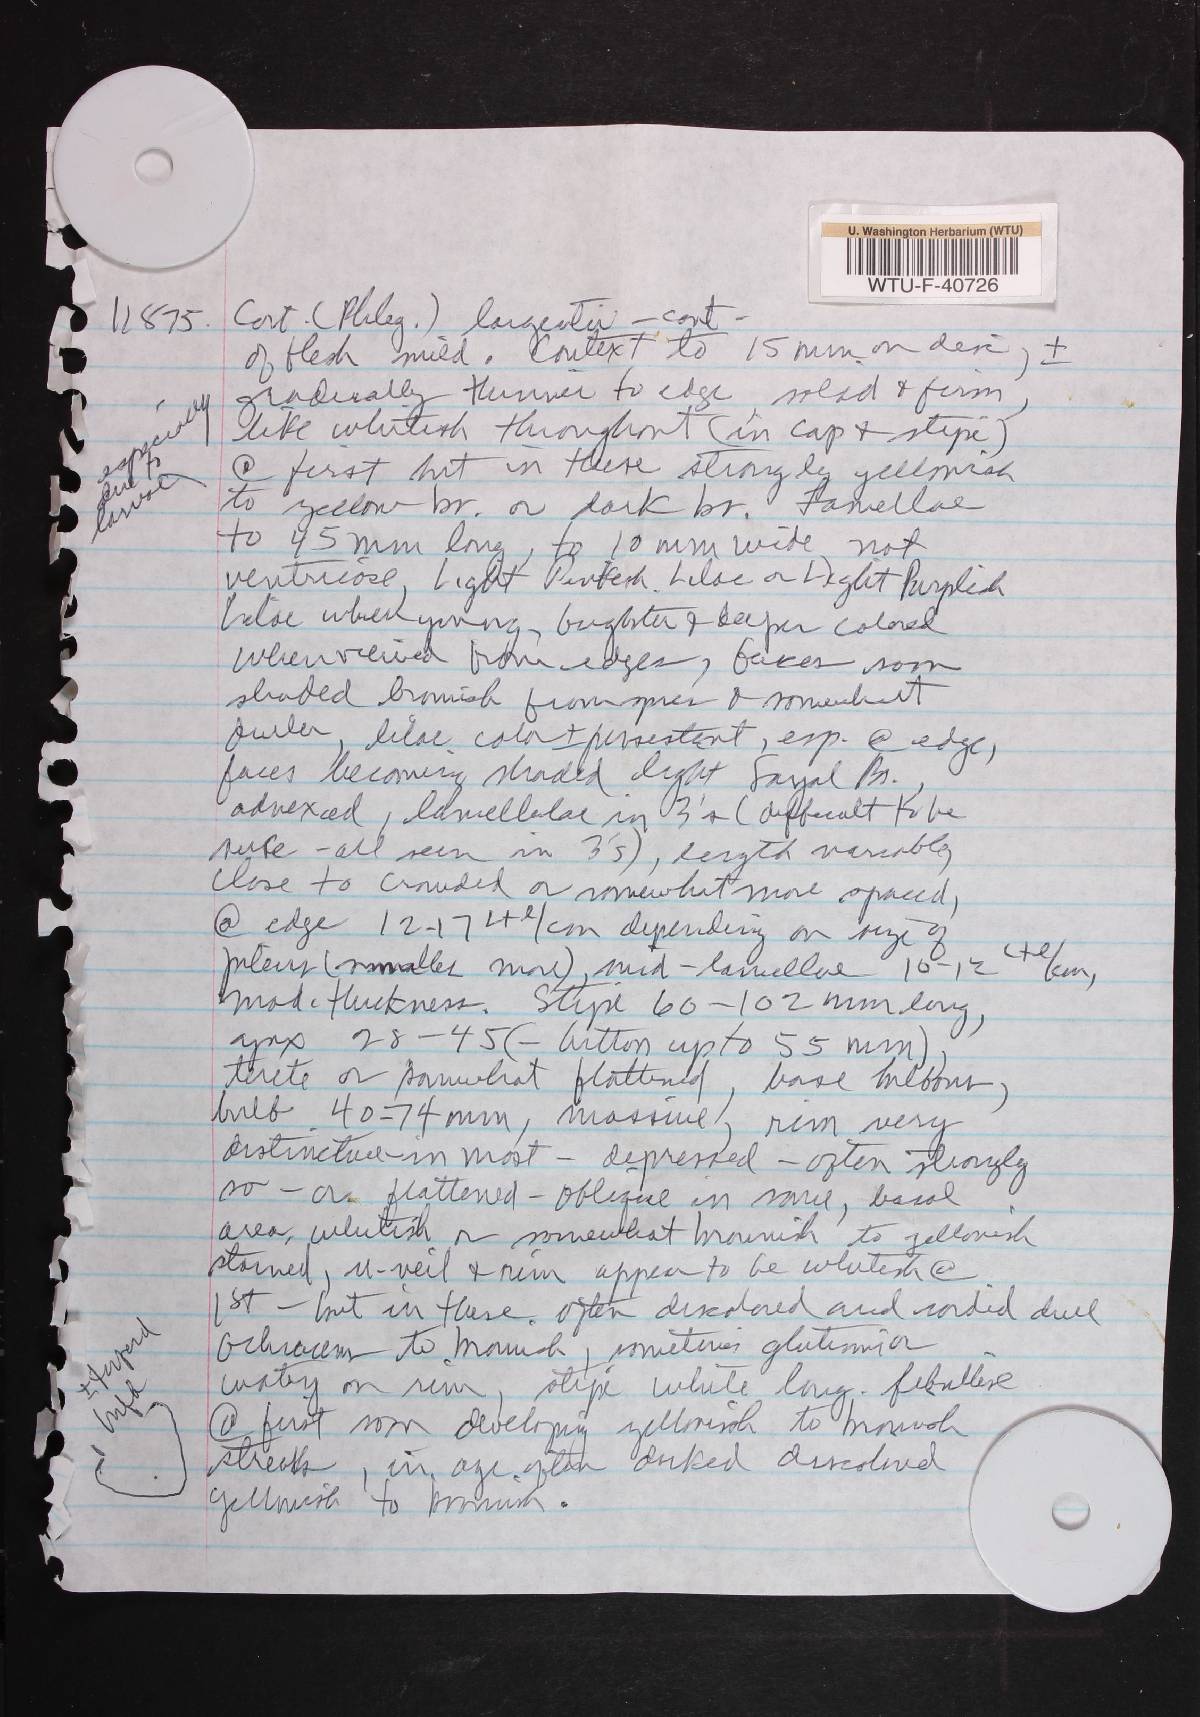 U. Washington Herbarium (WTU)
WTU-F-40726
11875. Cort. (Phleg.) - cont -
of flesh mild. Context to 15 mm on disc, ±
gradually thinner to edge solid & firm,
like whitish throughout (in cap & stipe)
@ first but in these strongly yellowish
especially
due to
larvae
to yellow br. or dark br. Lamellae
to 45 mm long, to 10 mm wide, not
ventricose, Light Pinkish Lilac or Light Purplish
Lilac when young, brighter & deeper colored
when viewed from edges, faces soon
shaded brownish from spores & somewhat
duller, lilac color ± persistent, esp. @ edge,
faces becoming shaded light Sayal Br.,
adnexed, lamellulae in 3's (difficult to be
sure - all seen in 3's), length variable,
close to crowded or somewhat more spaced,
@ edge 12-17 L+l/cm depending on size of
pileus (smaller more), mid-lamellae 10-12 L+l/cm,
mod. thickness. Stipe 60-102 mm long,
apex 28-45 (- button up to 55 mm),
terete or somewhat flattened, base bulbous,
bulb 40-74 mm, massive, rim very
distinctive in most - depressed - often strongly
so - or flattened - oblique in some, basal
area whitish or somewhat brownish to yellowish
stained, u-veil & rim appear to be whitish @
1st - but in these often discolored and sordid dull
ochraceous to brownish, sometimes glutinous or
watery on rim, stipe white long. fibrillose
@ first soon developing yellowish to brownish
streaks, in age often discolored
yellowish to brownish.